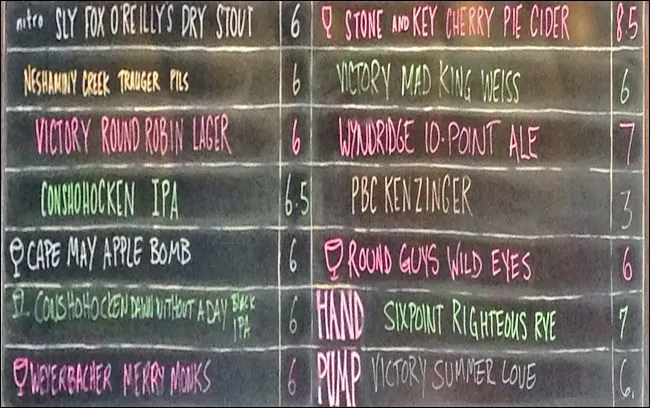 nitro SLY FOX O'REILLY'S DRY STOUT 6
NESHAMINY CREEK TRAUGER PILS 6
VICTORY ROUND ROBIN LAGER 6
CONSHOHOCKEN IPA 6.5
CAPE MAY APPLE BOMB 6
CONSHOHOCKEN DAWN WITHOUT A DAY BLACK IPA 6
WEYERBACHER MERRY MONKS 6
STONE AND KEY CHERRY PIE CIDER 8.5
VICTORY MAD KING WEISS 6
WYNDRIDGE 10-POINT ALE 7
PBC KENZINGER 3
ROUND GUYS WILD EYES 6
HAND SIXPOINT RIGHTEOUS RYE 7
PUMP VICTORY SUMMER LOVE 6.